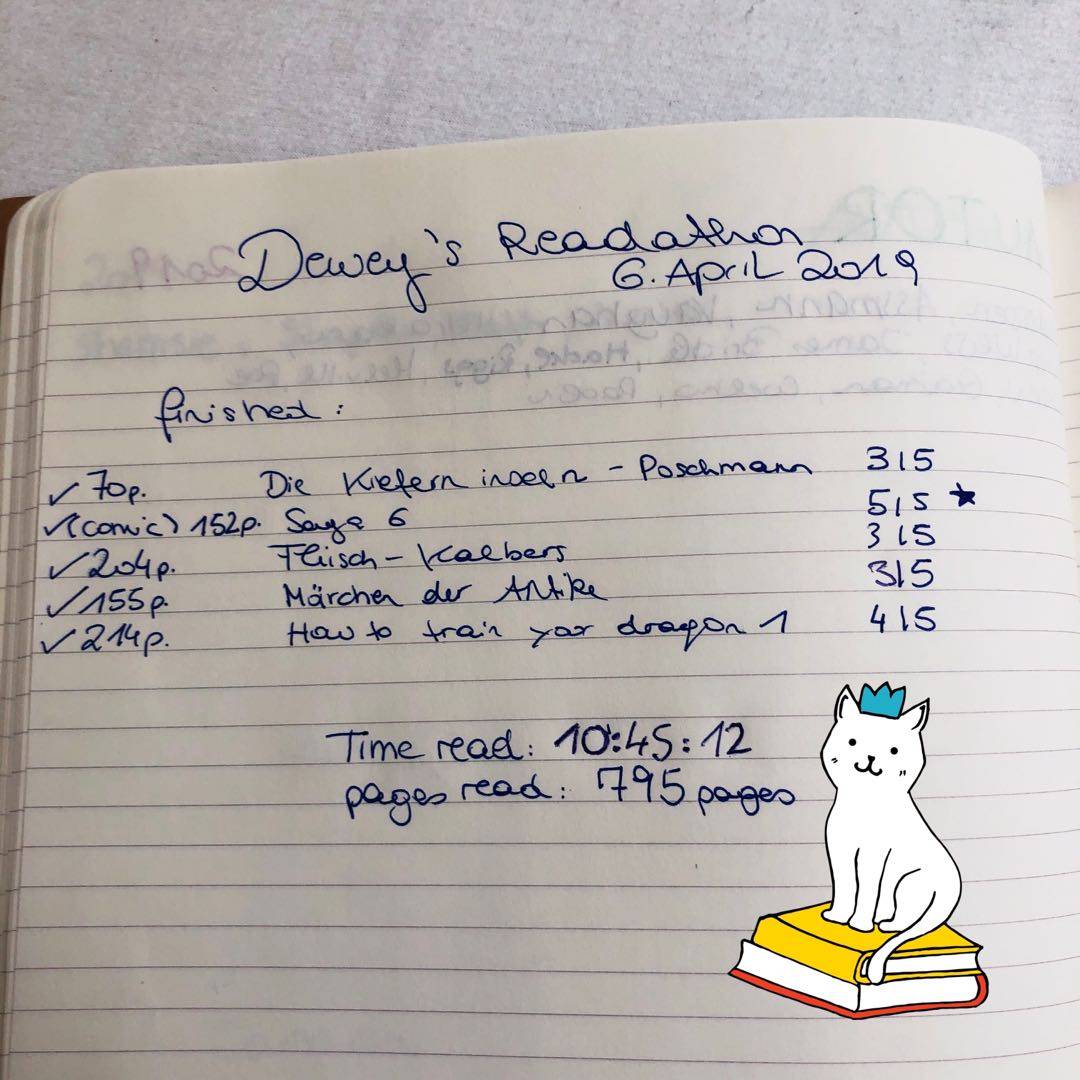 Dewey's Readathon
6. April 2019
finished:
✓ 70p. Die Kiefern inseln - Poschmann 3|5
✓ (comic) 152p. Saga 6 5|5 ★
✓ 204p. Fleisch - Kaelbers 3|5
✓ 155p. Märchen der Antike 3|5
✓ 214p. How to train your dragon 1 4|5
Time read: 10:45:12
pages read: 795 pages